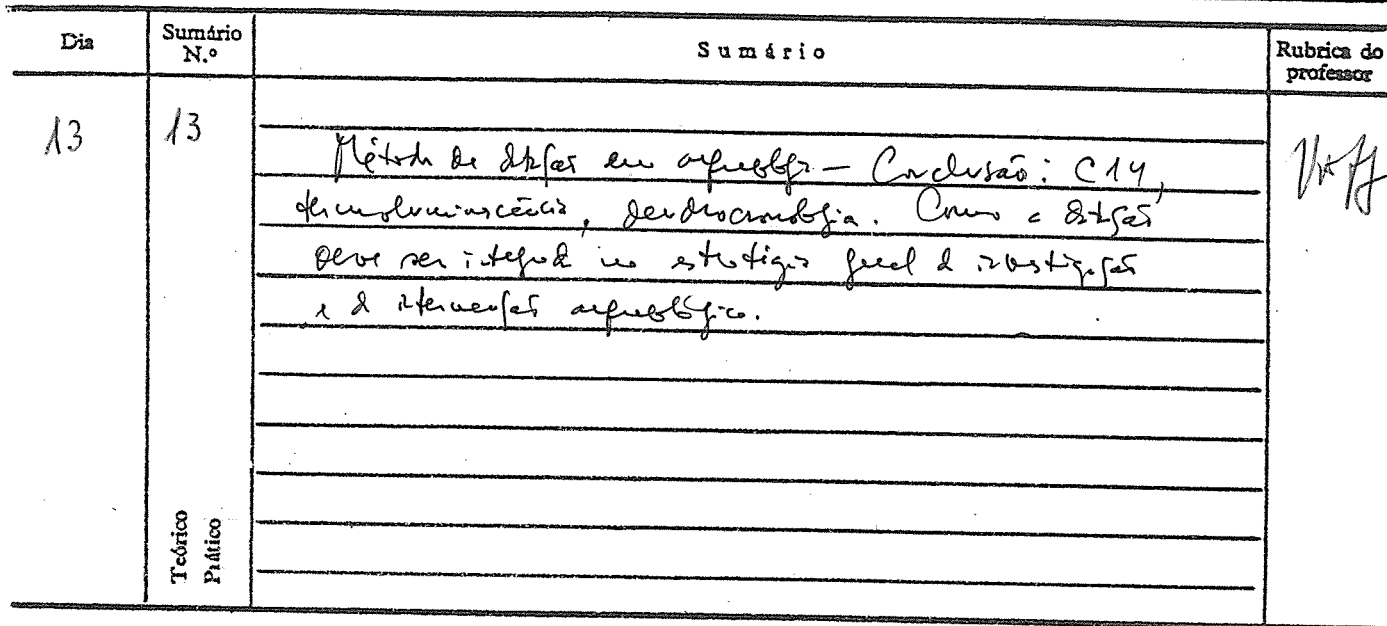 Dia
Sumário N.º
Sumário
Rubrica do professor
13
13
Método de datação em arqueologia — Conclusão: C14,
termoluminiscência, dendrocronologia. Como a datação
deve ser integrada na estratégia geral de investigação
e de intervenção arqueológica.
Teórico
Prático